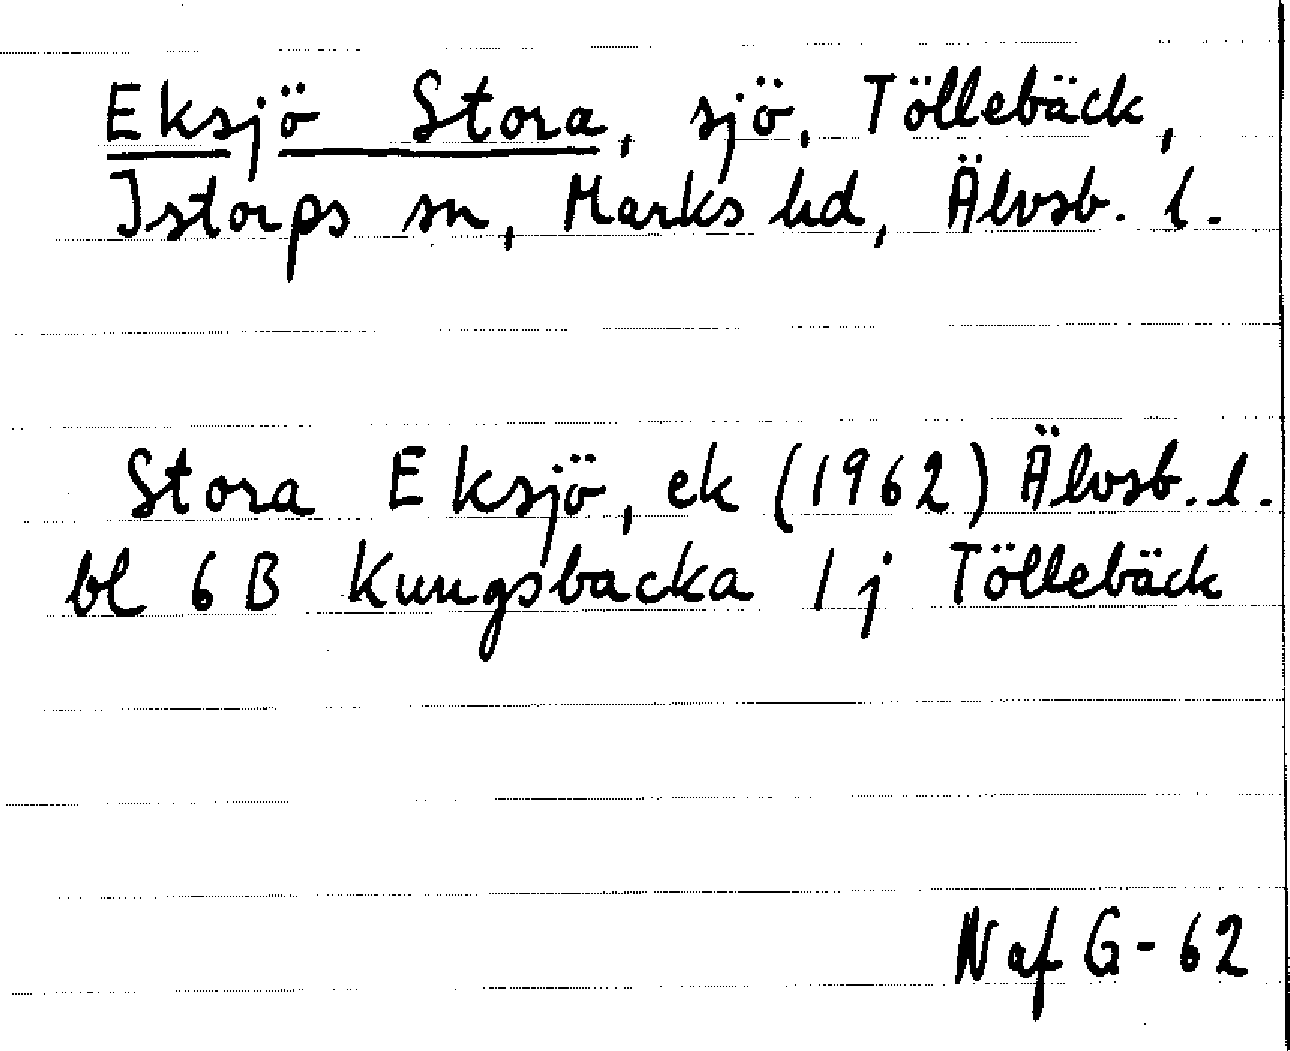 Eksjö Stora, sjö, Töllebäck,
Istorps sn, Marks hd, Älvsb. l.
Stora Eksjö, ek (1962) Älvsb. l.
bl 6 B Kungsbacka 1 j Töllebäck
N af G-62